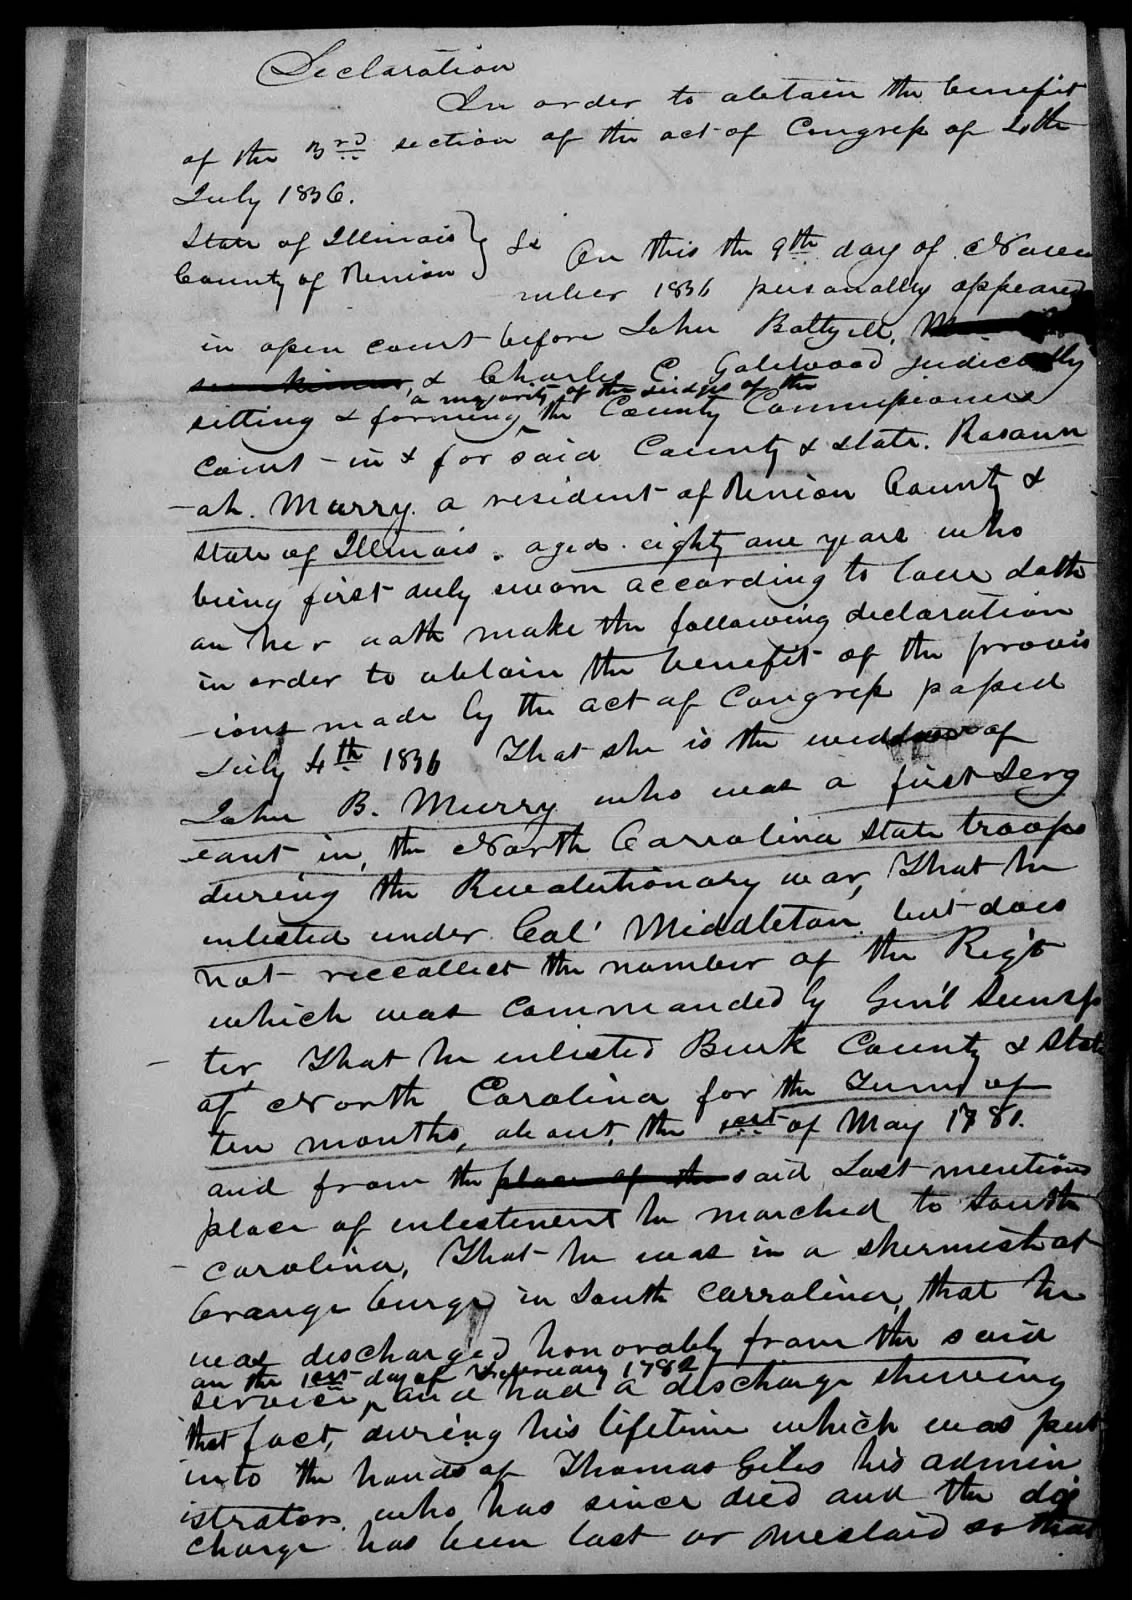 Declaration
In order to obtain the benefit
of the 3rd section of the act of Congress of 4th
July 1836.
State of Illinois }
County of Union } Ss On this the 9th day of Novem
mber 1836 personally appeared
in open court before John Battzell,
& Charles C. Gatewood judicially
a majority of the Judges of the
sitting & forming the County Commissioners
Court - in & for said County & State. Rosann
-ah. Murry. a resident of Union County &
State of Illinois. aged. eighty one years who
being first duly sworn according to law doth
on her oath make the following declaration
in order to obtain the benefit of the provis
-ions made by the act of Congress passed
July 4th 1836 That she is the widdow of
John B. Murry who was a first Serg
eant in, the North Carrolina State troops
during the Revolutionary war, That he
enlisted under Col' Middleton but does
not reccollect the number of the Reg't
which was commanded by Gen'l Sumpp
ter That he enlisted Burk County & State
of North Carolina for the Term of
ten months, about, the 1est of May 1781.
and from the place of the said Last mention
place of enlistment he marched to South
Carolina, That he was in a skermish at
Orange burgh in South Carrolina, that he
was discharged honorably from the said
on the 1est day of February 1782
service, and had a discharge shewing
that fact, during his lifetime which was put
into the hands of Thomas Giles his admin
istrator, who has since died and the dis
charge has been lost or mislaid so that